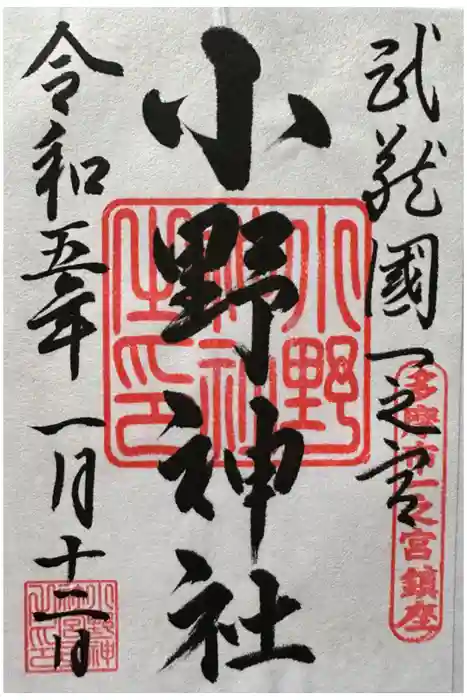 武蔵國一之宮
小野神社
令和五年一月十二日
小野神社之印
多摩市一之宮鎮座